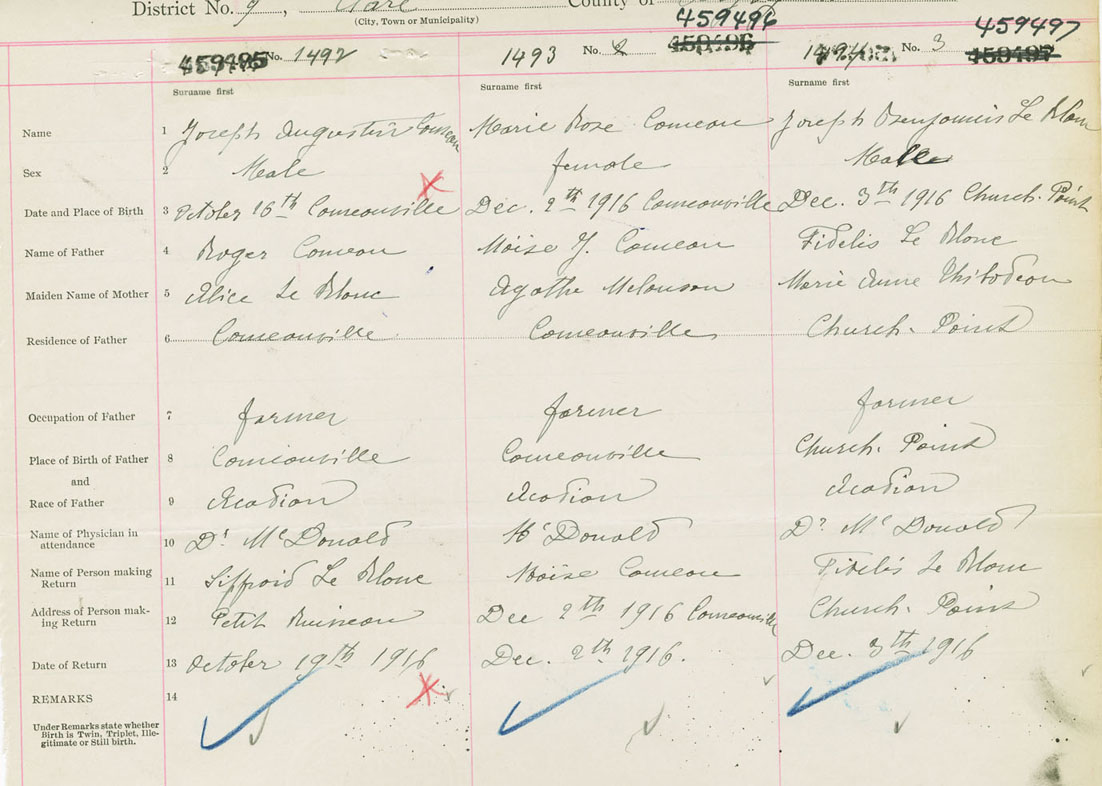 District No. 9, Clare County of
(City, Town or Municipality)
459496 459497
459495 No. 1492 1493 No. 2 459496 1494 No. 3 459497
Surname first Surname first Surname first
Name 1 Joseph Augustin Comeau Marie Rose Comeau Joseph Benjamin Le Blanc
Sex 2 Male female Male
Date and Place of Birth 3 October 16th Comeauville Dec. 2th 1916 Comeauville Dec. 3th 1916 Church Point
Name of Father 4 Roger Comeau Moïse J. Comeau Fidelis Le Blanc
Maiden Name of Mother 5 Alice Le Blanc Agathe Melanson Marie Anne Thibodeau
Residence of Father 6 Comeauville Comeauville Church Point
Occupation of Father 7 farmer farmer farmer
Place of Birth of Father 8 Comeauville Comeauville Church Point
and
Race of Father 9 Acadian Acadian Acadian
Name of Physician in
attendance 10 Dr McDonald McDonald Dr McDonald
Name of Person making
Return 11 Siffroid Le Blanc Moïse Comeau Fidelis Le Blanc
Address of Person mak-
ing Return 12 Petit Ruisseau Dec 2th 1916 Comeauville Church Point
Date of Return 13 October 19th 1916 Dec. 2th 1916. Dec. 3th 1916
REMARKS 14
Under Remarks state whether
Birth is Twin, Triplet, Ille-
gitimate or Still birth.